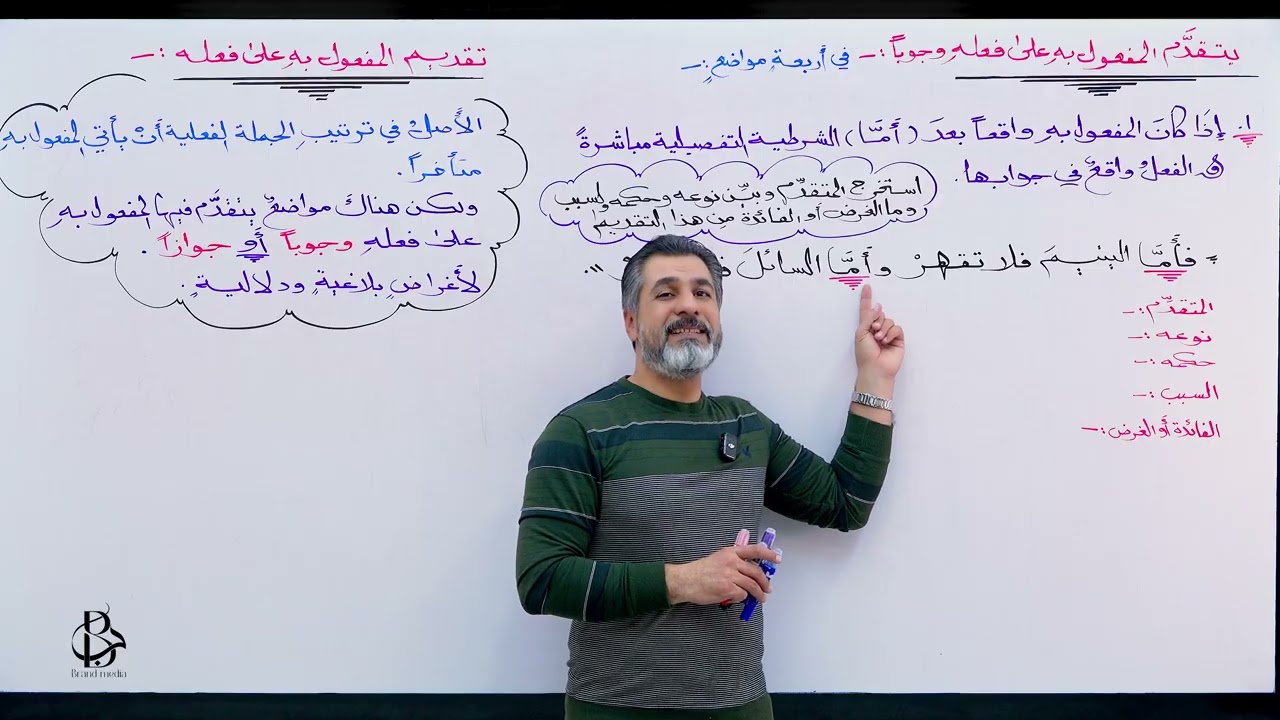 يتقدَّم المفعول بهِ على فعلهِ وجوباً :- في أربعةِ مواضعٍ :-
١. إذا كانَ المفعول بهِ واقعاً بعدَ (أمَّا) الشرطية التفصيلية مباشرةً
والفعلُ واقعٌ في جوابها.
استخرج المتقدِّم وبيِّن نوعه وحكمه والسبب
وما الغرض أو الفائدة من هذا التقديم
فأمَّا اليتيمَ فلا تقهرْ وأمَّا السائلَ
المتقدِّم :-
نوعه :-
حكمه :-
السبب :-
الفائدة أو الغرض :-
تقديم المفعول بهِ على فعله :-
الأصلُ في ترتيبِ الجملة الفعلية أنْ يأتي المفعول بهِ
متأخراً.
ولكن هناكَ مواضعٌ يتقدَّم فيها المفعول بهِ
على فعلهِ وجوباً أو جوازاً.
لأغراضٍ بلاغيةٍ ودلاليةٍ.
Brand media